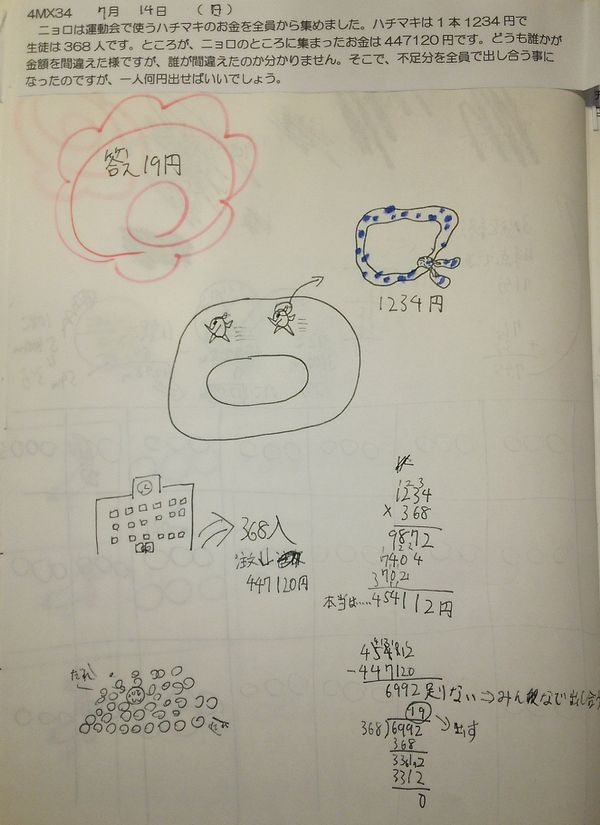 4MX34　7月　14日　（月）
ニョロは運動会で使うハチマキのお金を全員から集めました。ハチマキは1本1234円で
生徒は368人です。ところが、ニョロのところに集まったお金は447120円です。どうも誰かが
金額を間違えた様ですが、誰が間違えたのか分かりません。そこで、不足分を全員で出し合う事に
なったのですが、一人何円出せばいいでしょう。
答え19円
1234円
368人
447120円
1234
×368
9872
7404
3702
本当は……454112円
454112
-447120
6992足りない⇒みんなで出し合う
19
368)6992
出す
368
3312
3312
0
だれ